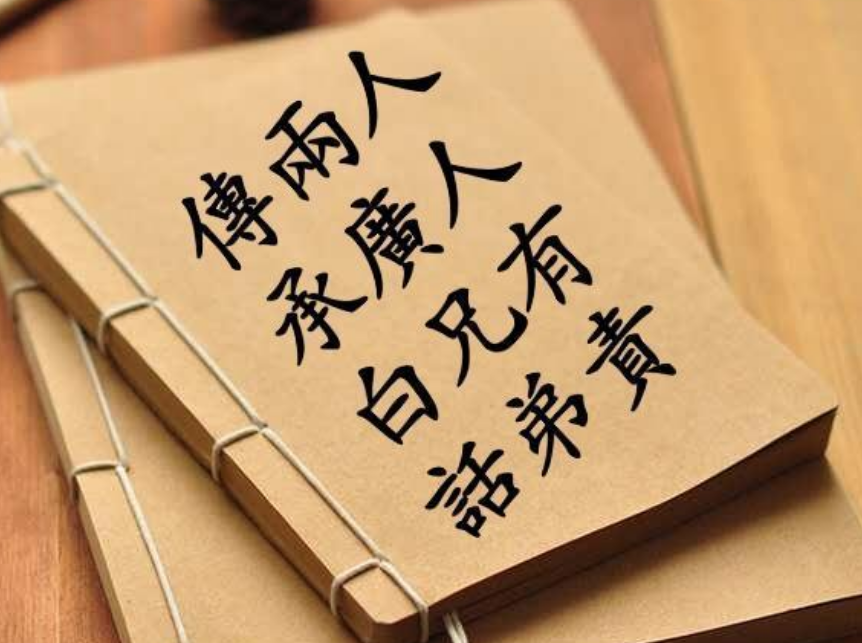 傳承白話
兩廣兄弟
人人有責